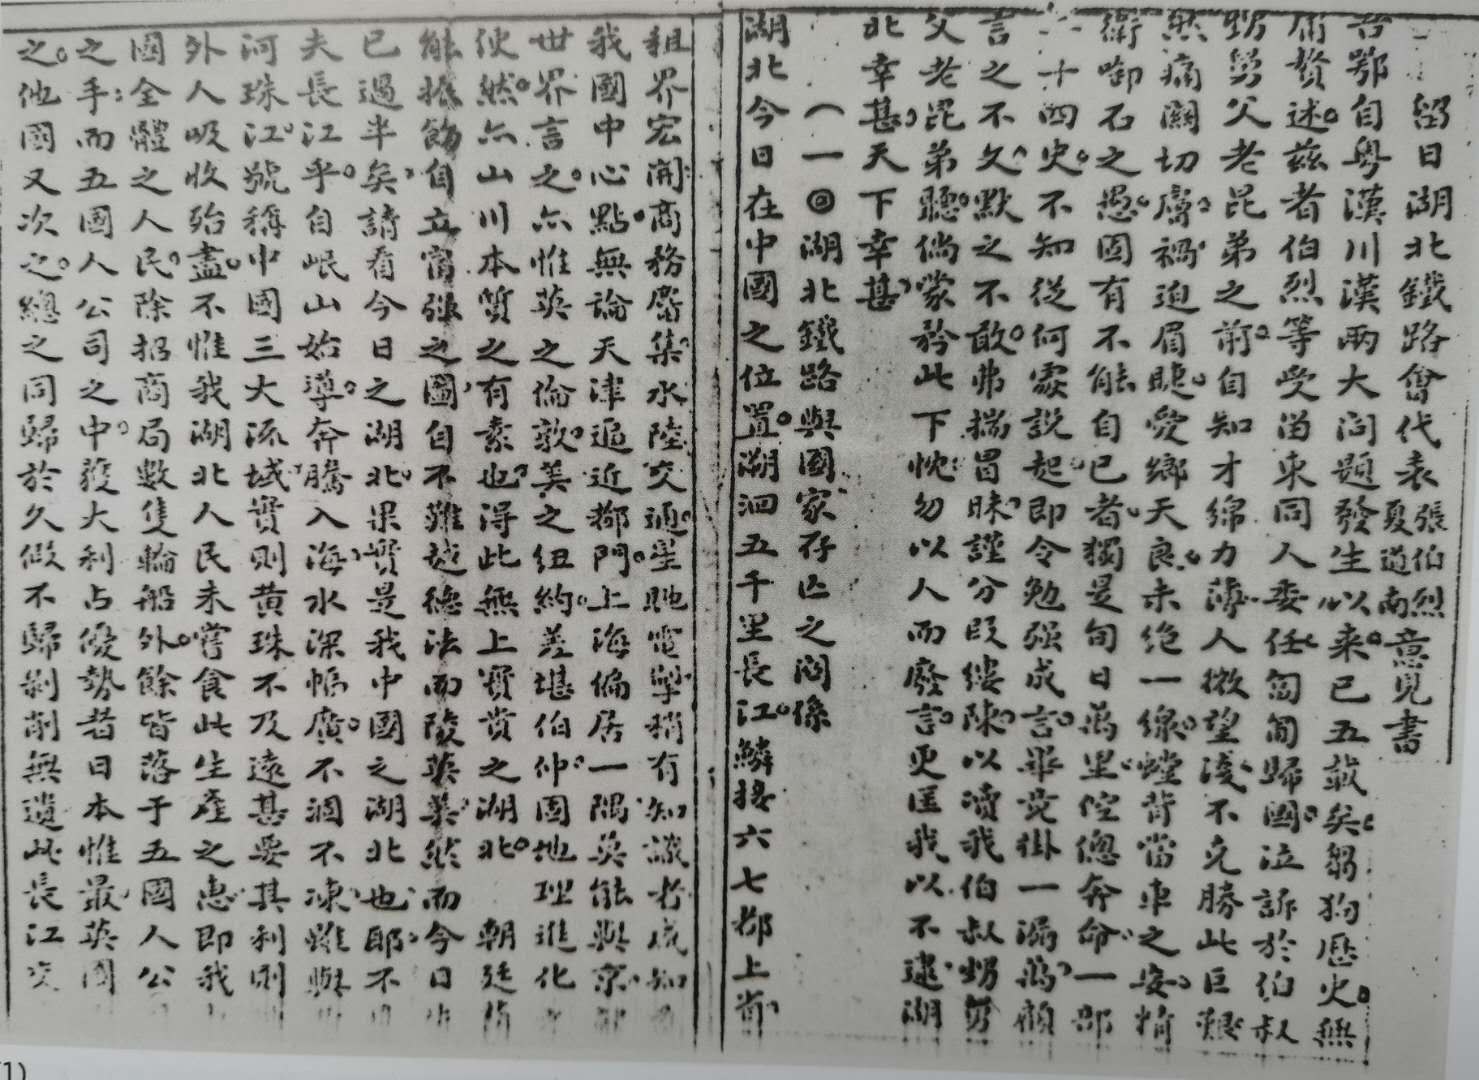 留日湖北鐵路會代表張伯烈夏道南意見書
吾鄂自粵漢川漢兩大問題發生以来已五載矣芻狗歷史無
庸贅述茲者伯烈等受留東同人委任匍匐歸國泣訴於伯叔
甥舅父老昆弟之前自知才綿力薄人微望淺不克勝此巨艱
然痛關切膚禍迫眉睫愛鄉天良未絶一線螳背當車之妄精
衛啣石之愚固有不能自已者獨是旬日萬里倥傯奔命一部
二十四史不知從何處説起即令勉强成言舉党掛一漏萬顧
言之不文默之不敢弗揣冒昧謹分段縷陳以瀆我伯叔甥舅
父老昆弟聽倘蒙矜此下忱勿以人而廢言更匡我以不逮湖
北幸甚天下幸甚
（一◎湖北鐵路與國家存亡之関係
湖北今日在中國之位置溯洄五千里長江鱗接六七都上省
租界宏開商務麕集水陸交通星馳電掣稍有知識者咸知
我國中心點無論天津逼近都門上海偏居一隅莫能與京
世界言之亦惟英之倫敦美之紐約差堪伯仲固地理進化
使然亦山川本質之有素也淂此無上寶貴之湖北 朝廷
能振飭自立富强之圖自不難越德法而陵英美然而今日
已過半矣請看今日之湖北果實是我中國之湖北也耶不
夫長江乎自岷山始導奔騰入海水深幅廣不涸不凍雖與
河珠江號稱中國三大流域實則黄珠不及遠甚要其利則
外人吸收殆盡不惟我湖北人民未嘗食此生產之惠即我
國全體之人民除招商局數隻輪船外餘皆落于五國人公
之手而五國人公司之中獲大利占優勢者日本惟最英國
之他國又次之總之同歸於久假不歸剥削無遺此長江交
(1)